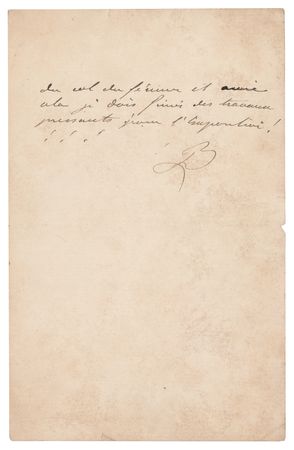 du col du fémur et avec
cela je dois finir des travaux
pressants pour l'Exposition!
! ! ! !
B